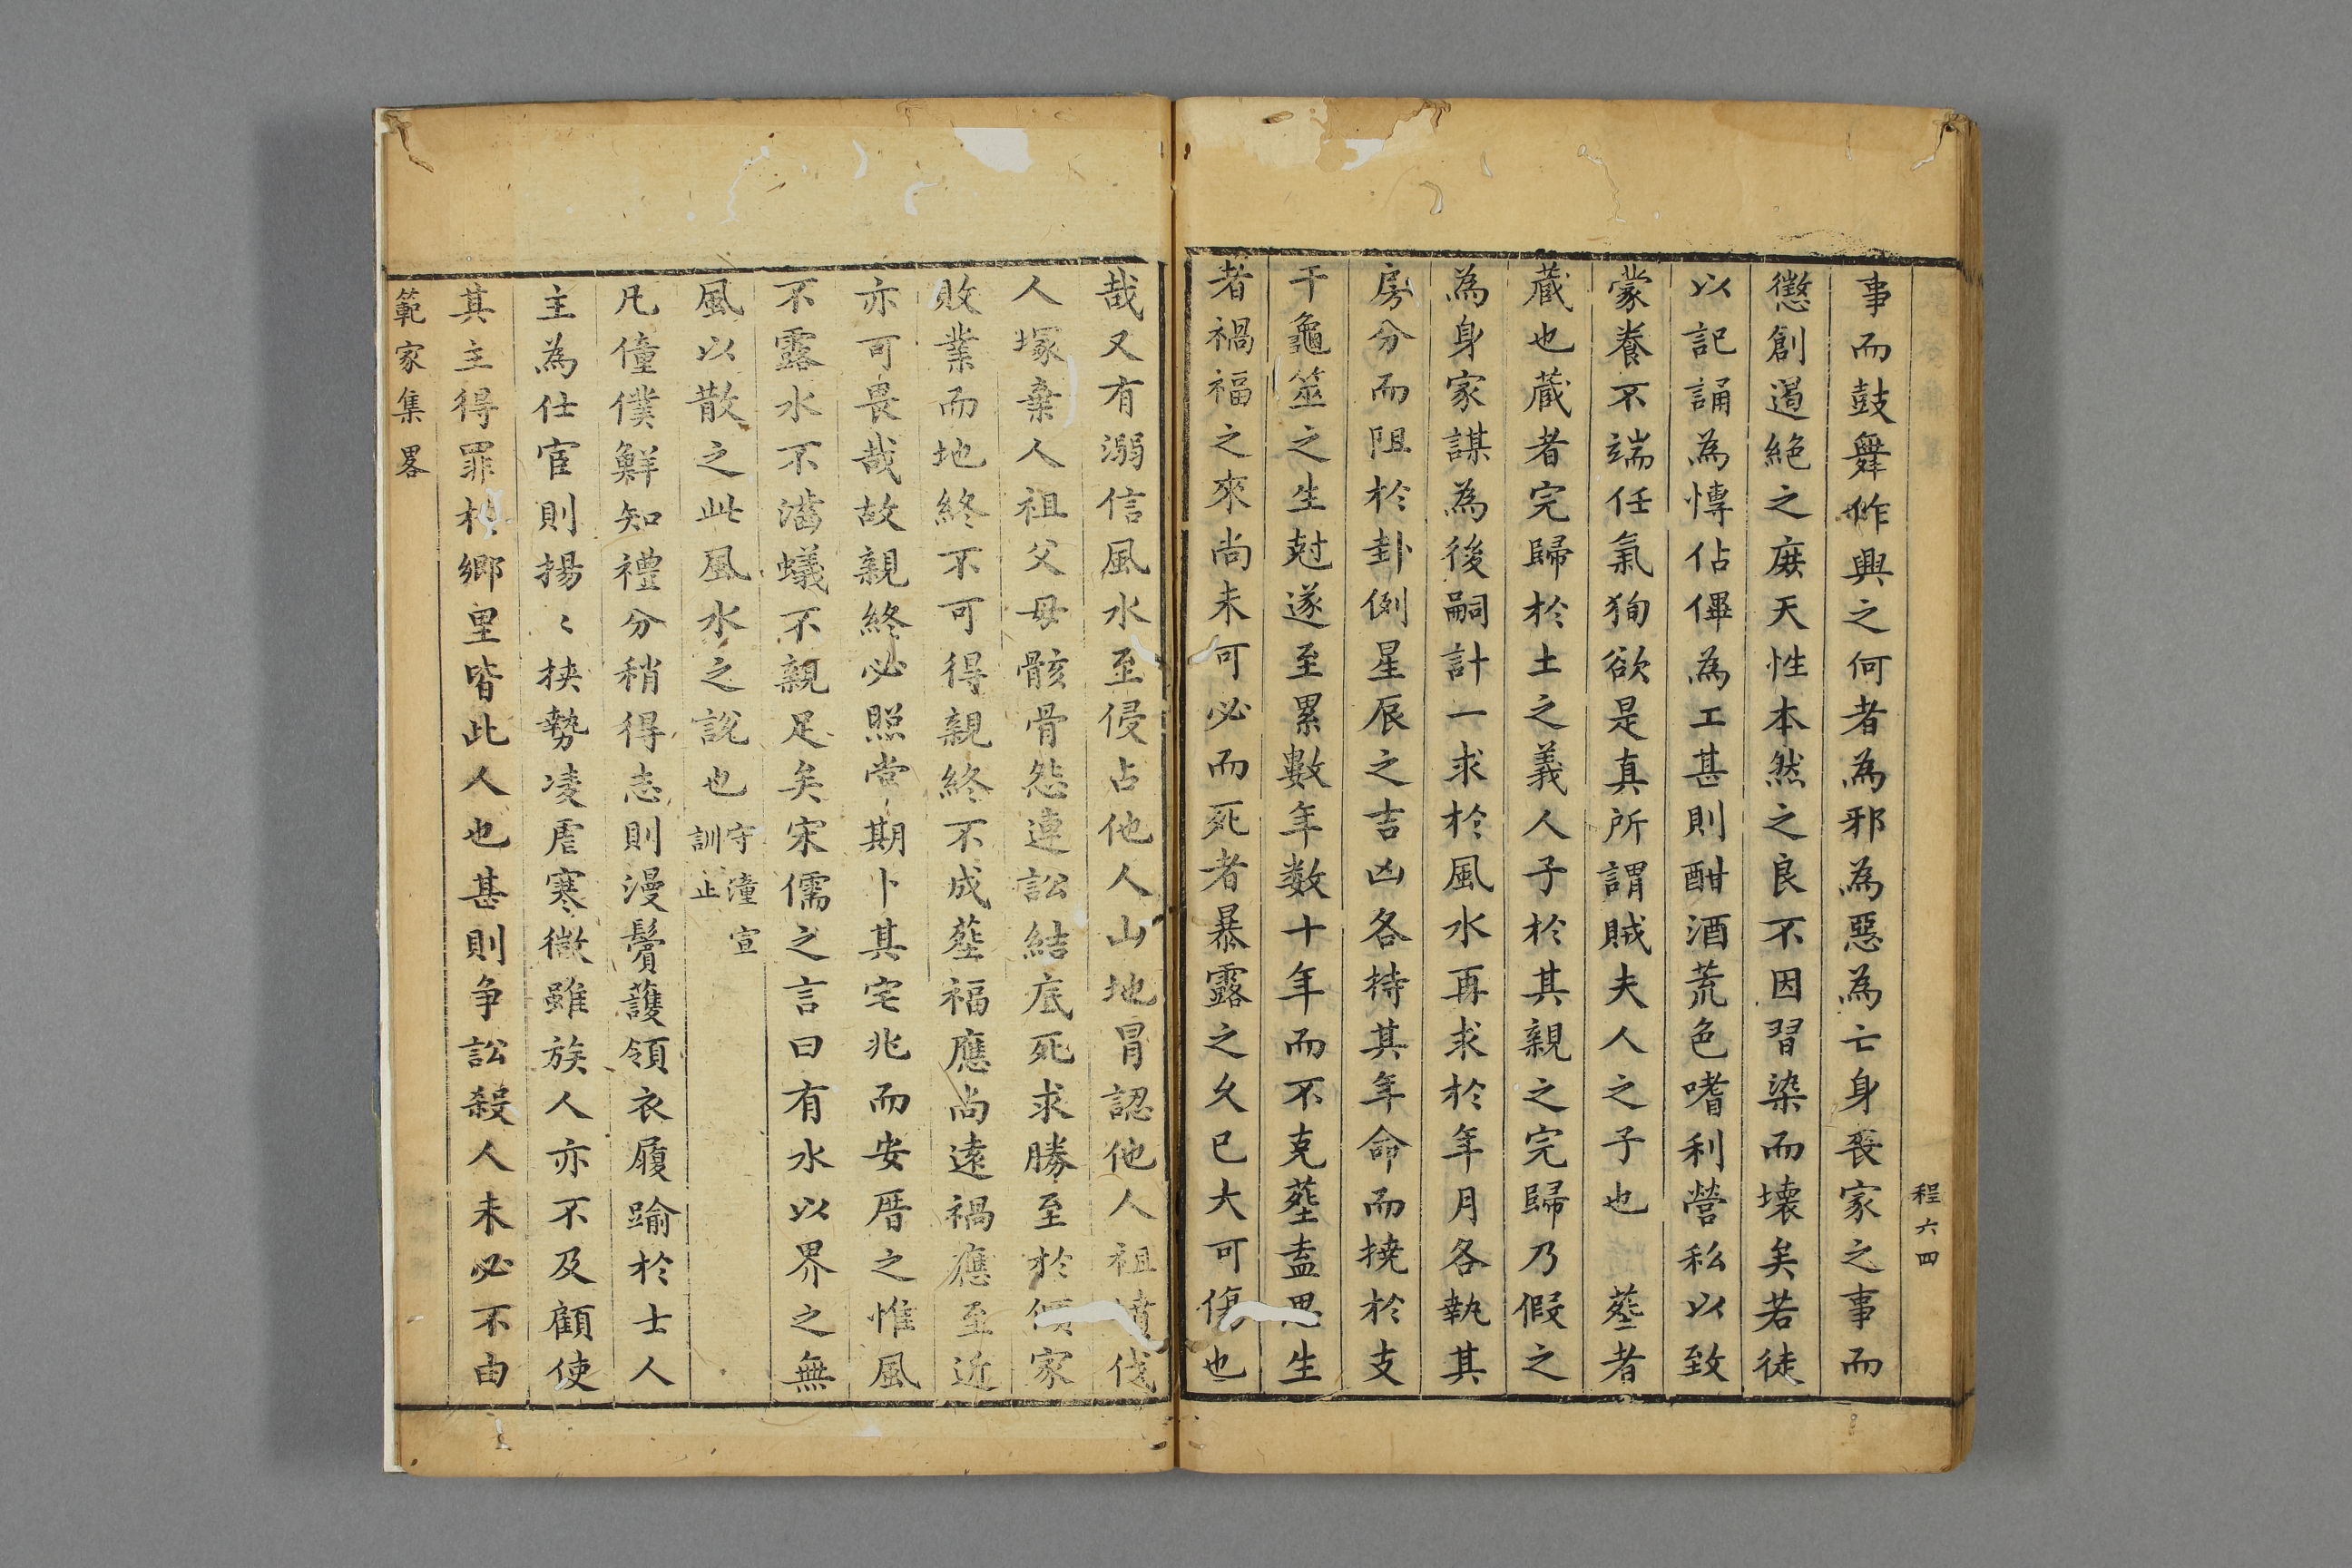 程六四
事而鼓舞作興之何者為邪為惡為亡身喪家之事而
懲創遏絕之庶天性本然之良不因習染而壞矣若徒
以記誦為慱佔俾為工甚則酣酒荒色嗜利營私以致
蒙養不端任氣狥欲是真所謂賊夫人之子也　塟者
蔵也蔵者完歸於土之義人子於其親之完歸乃假之
為身家謀為後嗣計一求於風水再求於年月各執其
房分而阻於卦例星辰之吉凶各持其年命而撓於支
干龜筮之生尅遂至累數年数十年而不克塟盍思生
者禍福之來尚未可必而死者暴露之久已大可傷也
哉又有溺信風水至侵占他人山地冐認他人祖墳伐
人塚棄人祖父母骸骨怨連訟結底死求勝至於傾家
敗業而地終不可得親終不成塟福應尚遠禍應至近
亦可畏哉故親終必照常期卜其宅兆而安厝之惟風
不露水不濇蟻不親足矣宋儒之言曰有水以界之無
風以散之此風水之說也守潼宣訓止
凡僮僕鮮知禮分稍得志則漫鬢䕶領衣履踰於士人
主為仕宦則揚〻挟勢凌虐寒微雖族人亦不及顧使
其主得罪於鄉里皆此人也甚則争訟殺人未必不由
範家集畧